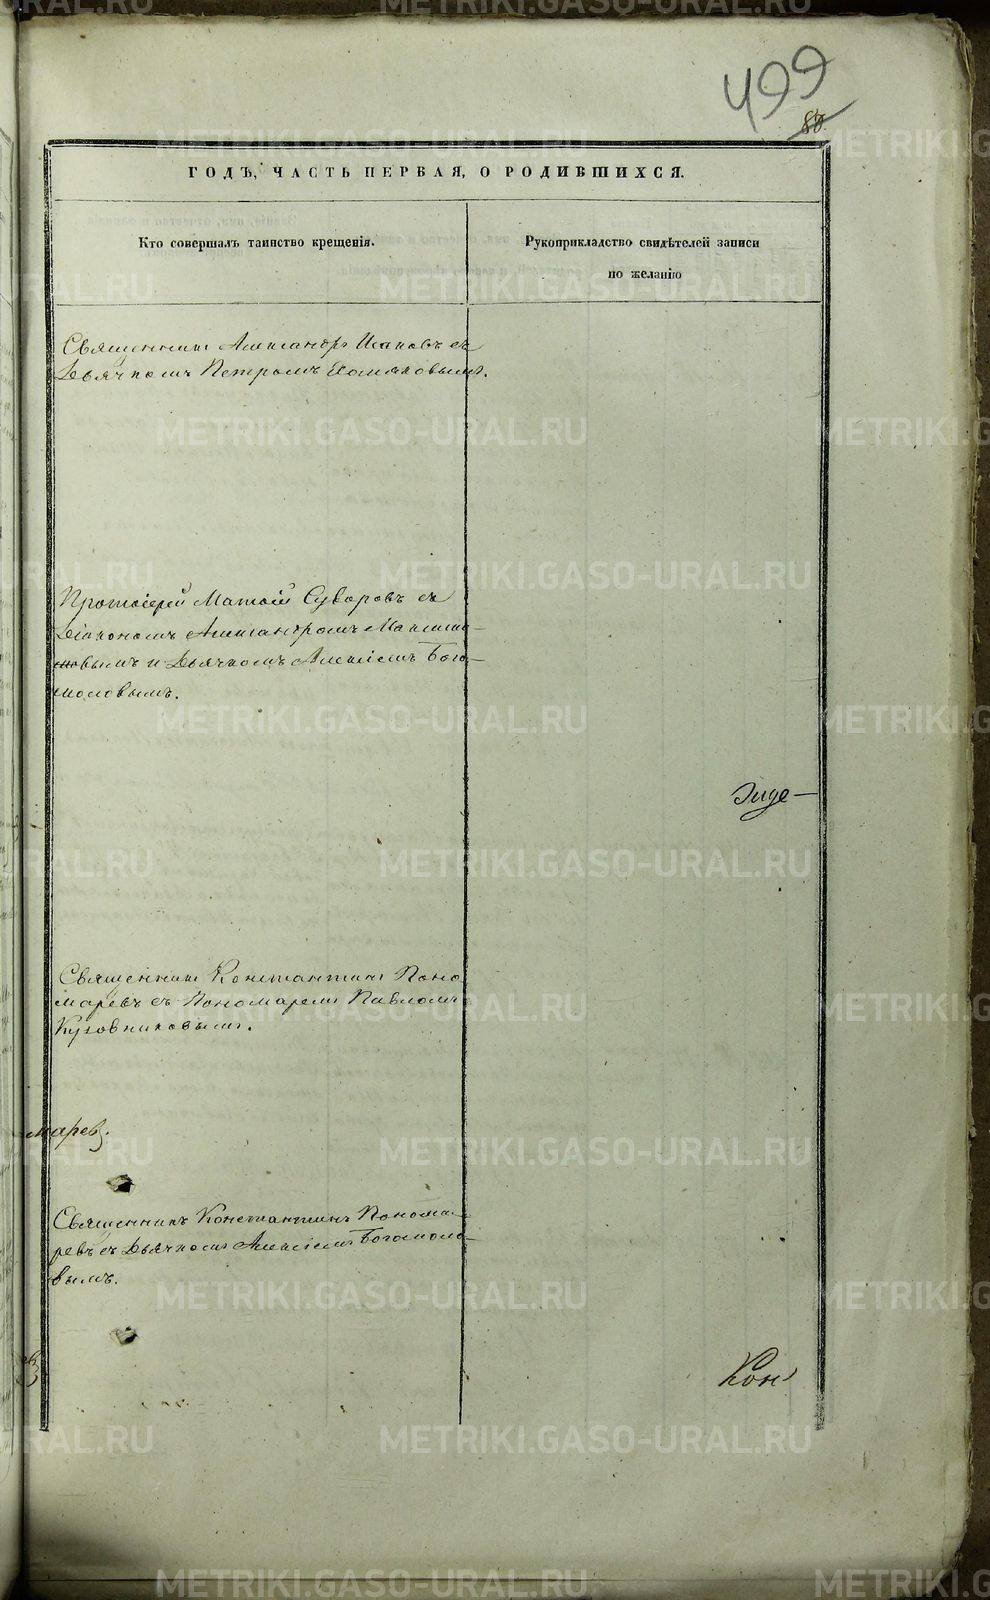 499
80.
ГОДЪ, ЧАСТЬ ПЕРВАЯ, О РОДИВШИХСЯ.
Кто совершалъ таинство крещенія.
Рукоприкладство свидѣтелей записи
по желанію
Священникъ Александръ Исаковъ съ
Дьячкомъ Петромъ Хомяковымъ.
Протоіерей Матѳій Суворовъ съ
Діакономъ Александромъ Макси
новымъ и Дьячкомъ Алексіемъ Бого-
моловымъ.
Священникъ Константинъ Поно
маревъ съ Пономаремъ Павломъ
Кузовниковымъ.
маревъ.
Священникъ Константинъ Понома-
ревъ съ Дьячкомъ Алексіемъ Богомоло-
вымъ.
Кон
METRIKI.GASO-URAL.RU